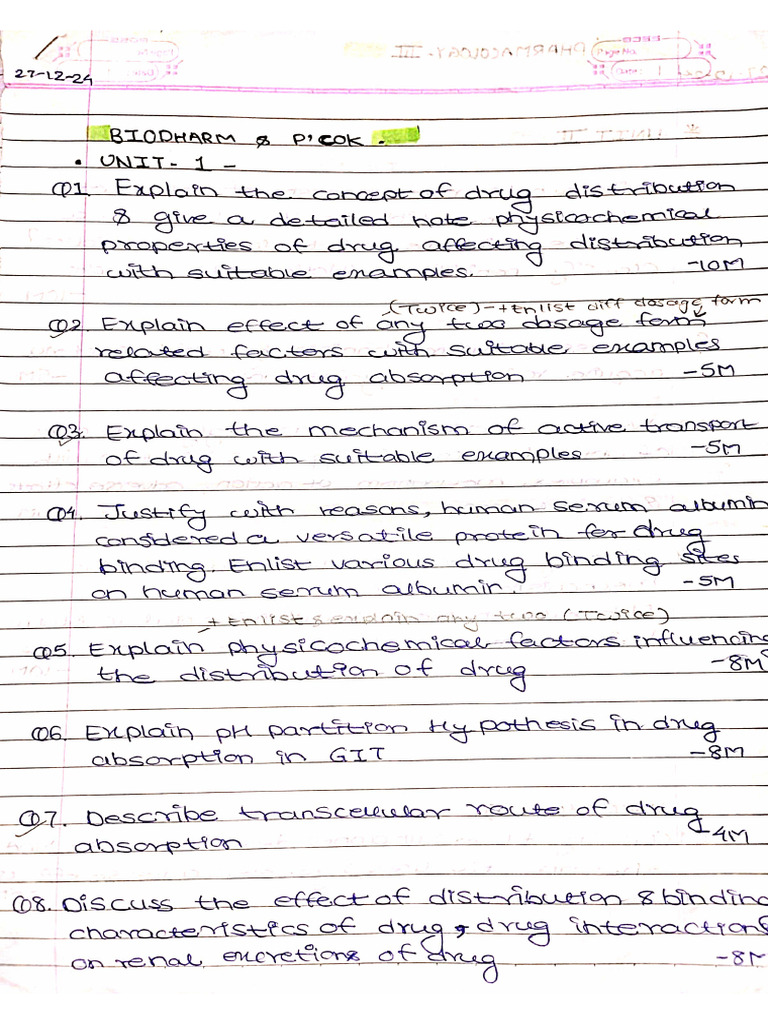 27-12-24
PHARMACOLOGY-III
Page No.
Date:
BIOPHARM & P'COK.
• UNIT-1-
Q1. Explain the concept of drug distribution
& give a detailed note physicochemical
properties of drug affecting distribution
with suitable examples. -10M
(Twice) -+Enlist diff dosage form
Q2. Explain effect of any two dosage form
related factors with suitable examples
affecting drug absorption -5M
Q3. Explain the mechanism of active transport
of drug with suitable examples -5M
Q4. Justify with reasons, human serum albumin
considered a versatile protein for drug
binding. Enlist various drug binding sites
on human serum albumin. -5M
+Enlist & explain any two (Twice)
Q5. Explain physicochemical factors influencing
the distribution of drug -8M
Q6. Explain pH partition Hypothesis in drug
absorption in GIT -8M
Q7. Describe transcellular route of drug
absorption -4M
Q8. Discuss the effect of distribution & binding
characteristics of drug, drug interactions
on renal excretions of drug -8M